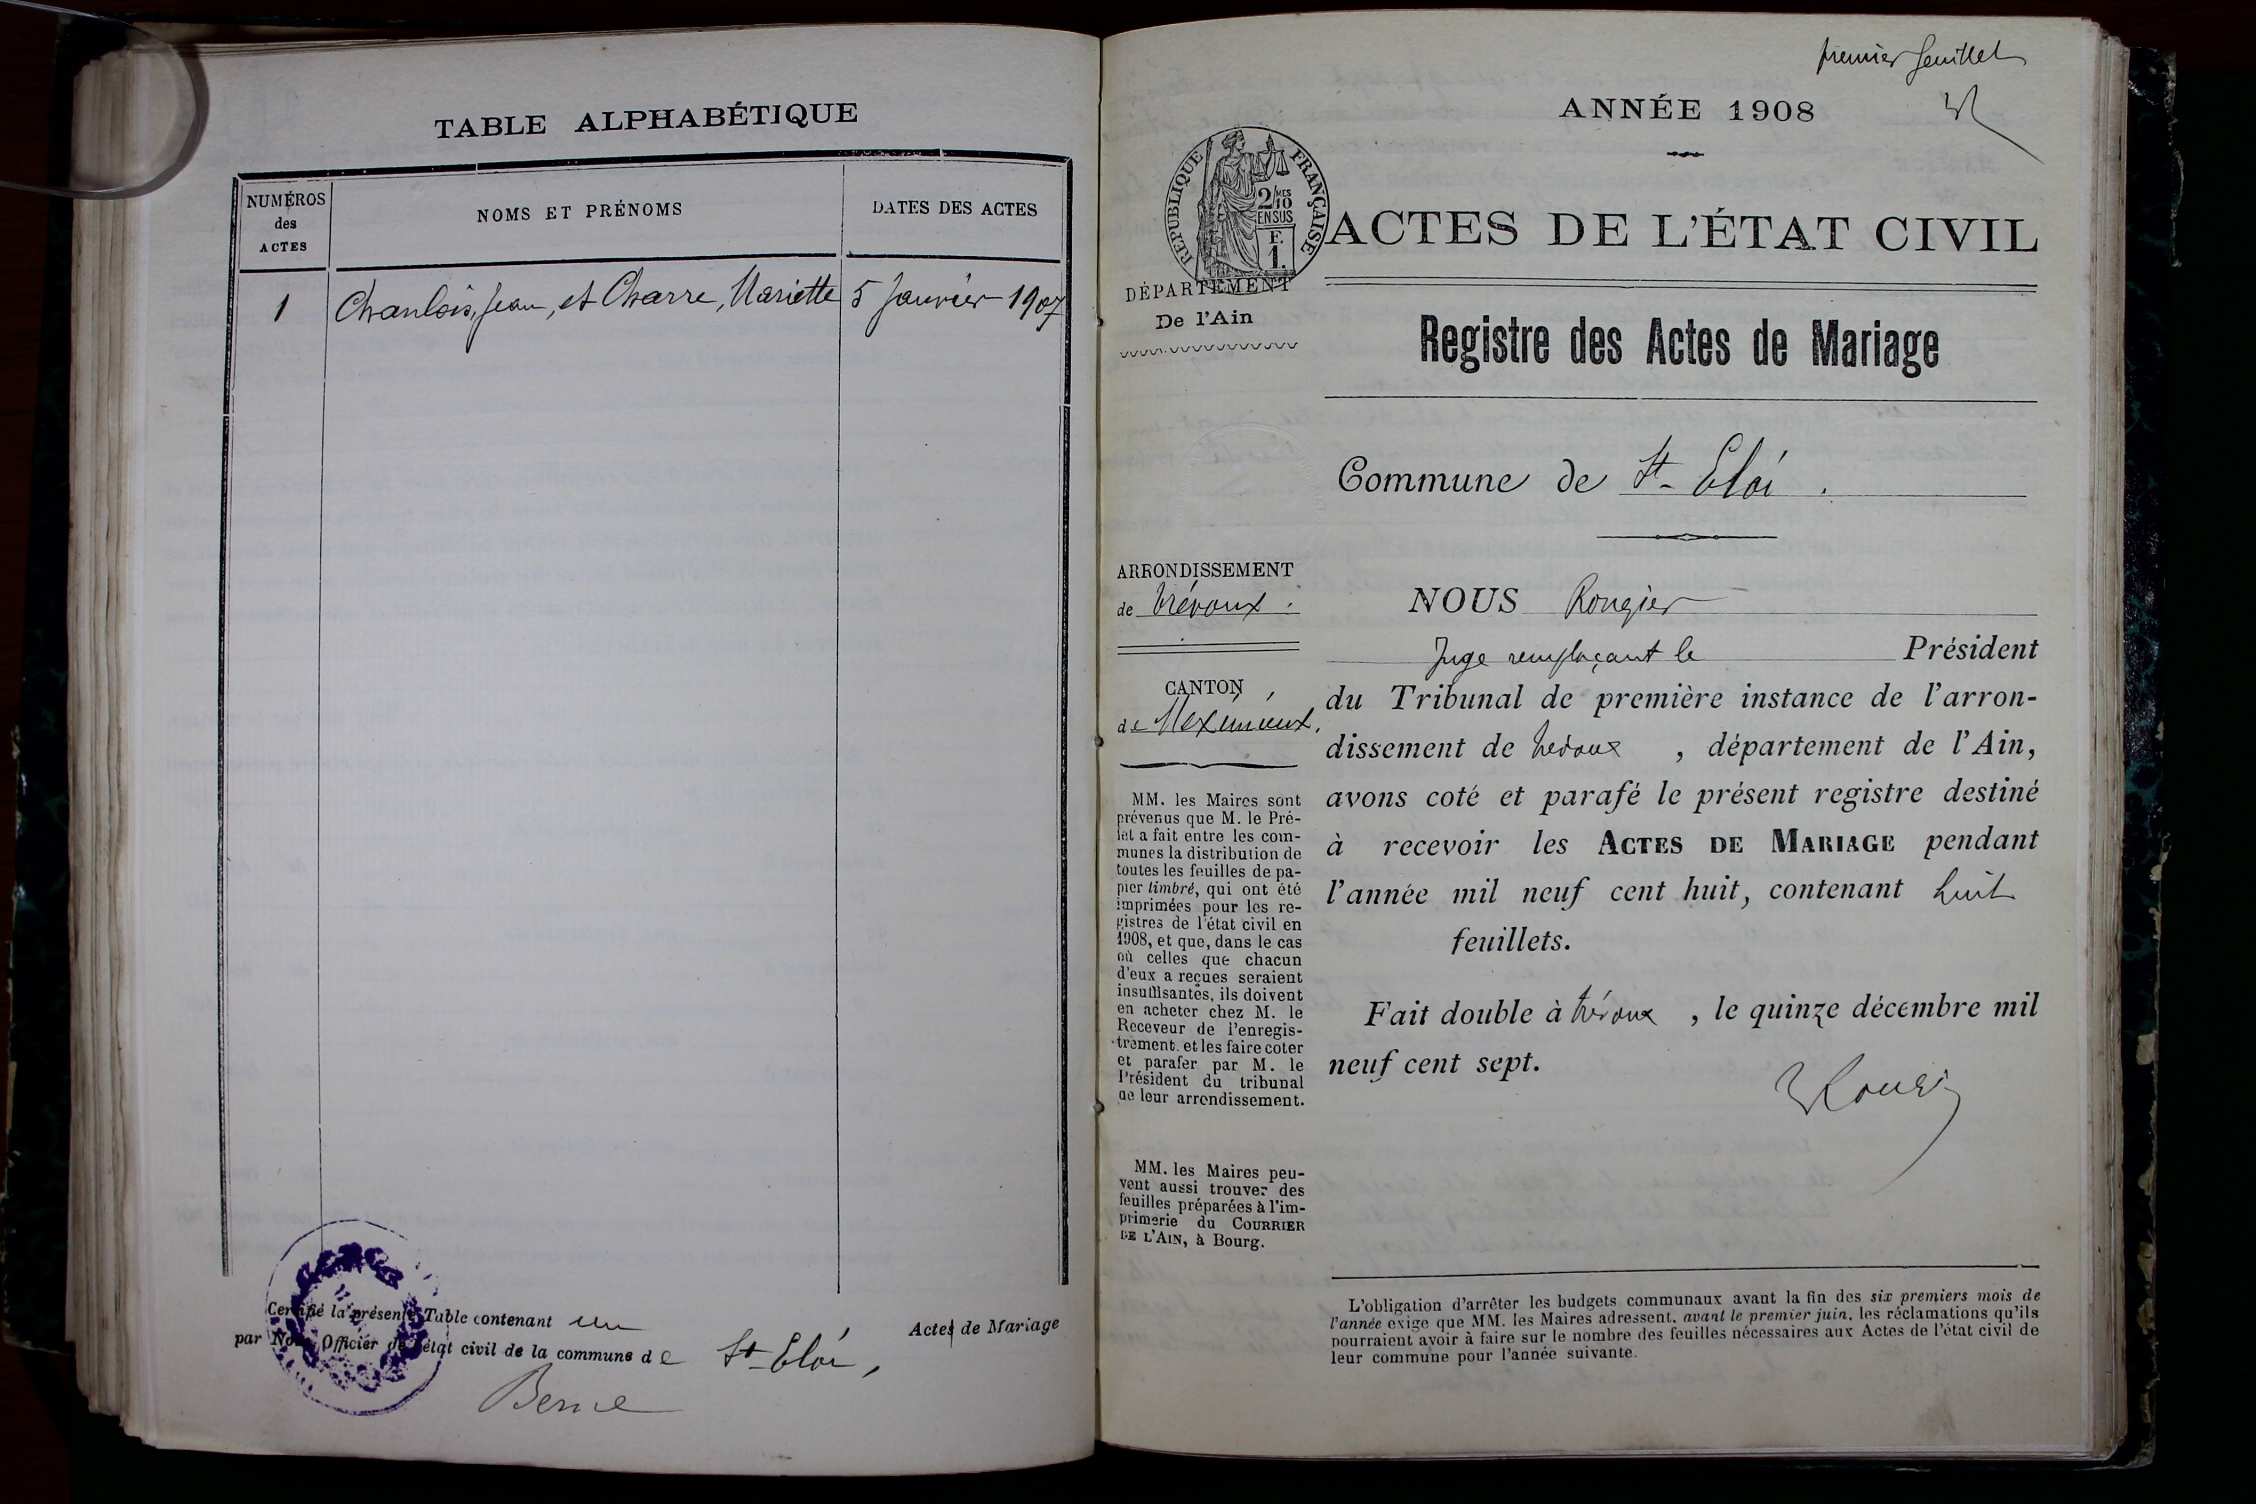 TABLE ALPHABÉTIQUE
NUMÉROS
des
ACTES
NOMS ET PRÉNOMS
DATES DES ACTES
1 Chanlois, Jean, et Charre, Mariette 5 Janvier 1907
Certifié la présente Table contenant un Actes de Mariage
par Nous Officier de l'état civil de la commune de St-Eloi,
premier feuillet
ANNÉE 1908
RÉPUBLIQUE FRANÇAISE
2/MES
10
EN SUS
F.
1.
ACTES DE L'ÉTAT CIVIL
DÉPARTEMENT
De l'Ain
Registre des Actes de Mariage
Commune de St-Eloi.
ARRONDISSEMENT
de Trévoux.
CANTON
de Meximieux.
MM. les Maires sont
prévenus que M. le Pré-
fet a fait entre les com-
munes la distribution de
toutes les feuilles de pa-
pier timbré, qui ont été
imprimées pour les re-
gistres de l'état civil en
1908, et que, dans le cas
où celles que chacun
d'eux a reçues seraient
insuffisantes, ils doivent
en acheter chez M. le
Receveur de l'enregis-
trement. et les faire coter
et parafer par M. le
Président du tribunal
de leur arrondissement.
MM. les Maires peu-
vent aussi trouver des
feuilles préparées à l'im-
primerie du COURRIER
DE L'AIN, à Bourg.
NOUS Rougier
Juge remplaçant le Président
du Tribunal de première instance de l'arron-
dissement de Trévoux, département de l'Ain,
avons coté et parafé le présent registre destiné
à recevoir les ACTES DE MARIAGE pendant
l'année mil neuf cent huit, contenant huit
feuillets.
Fait double à Trévoux, le quinze décembre mil
neuf cent sept.
L'obligation d'arrêter les budgets communaux avant la fin des six premiers mois de
l'année exige que MM. les Maires adressent, avant le premier juin, les réclamations qu'ils
pourraient avoir à faire sur le nombre des feuilles nécessaires aux Actes de l'état civil de
leur commune pour l'année suivante.